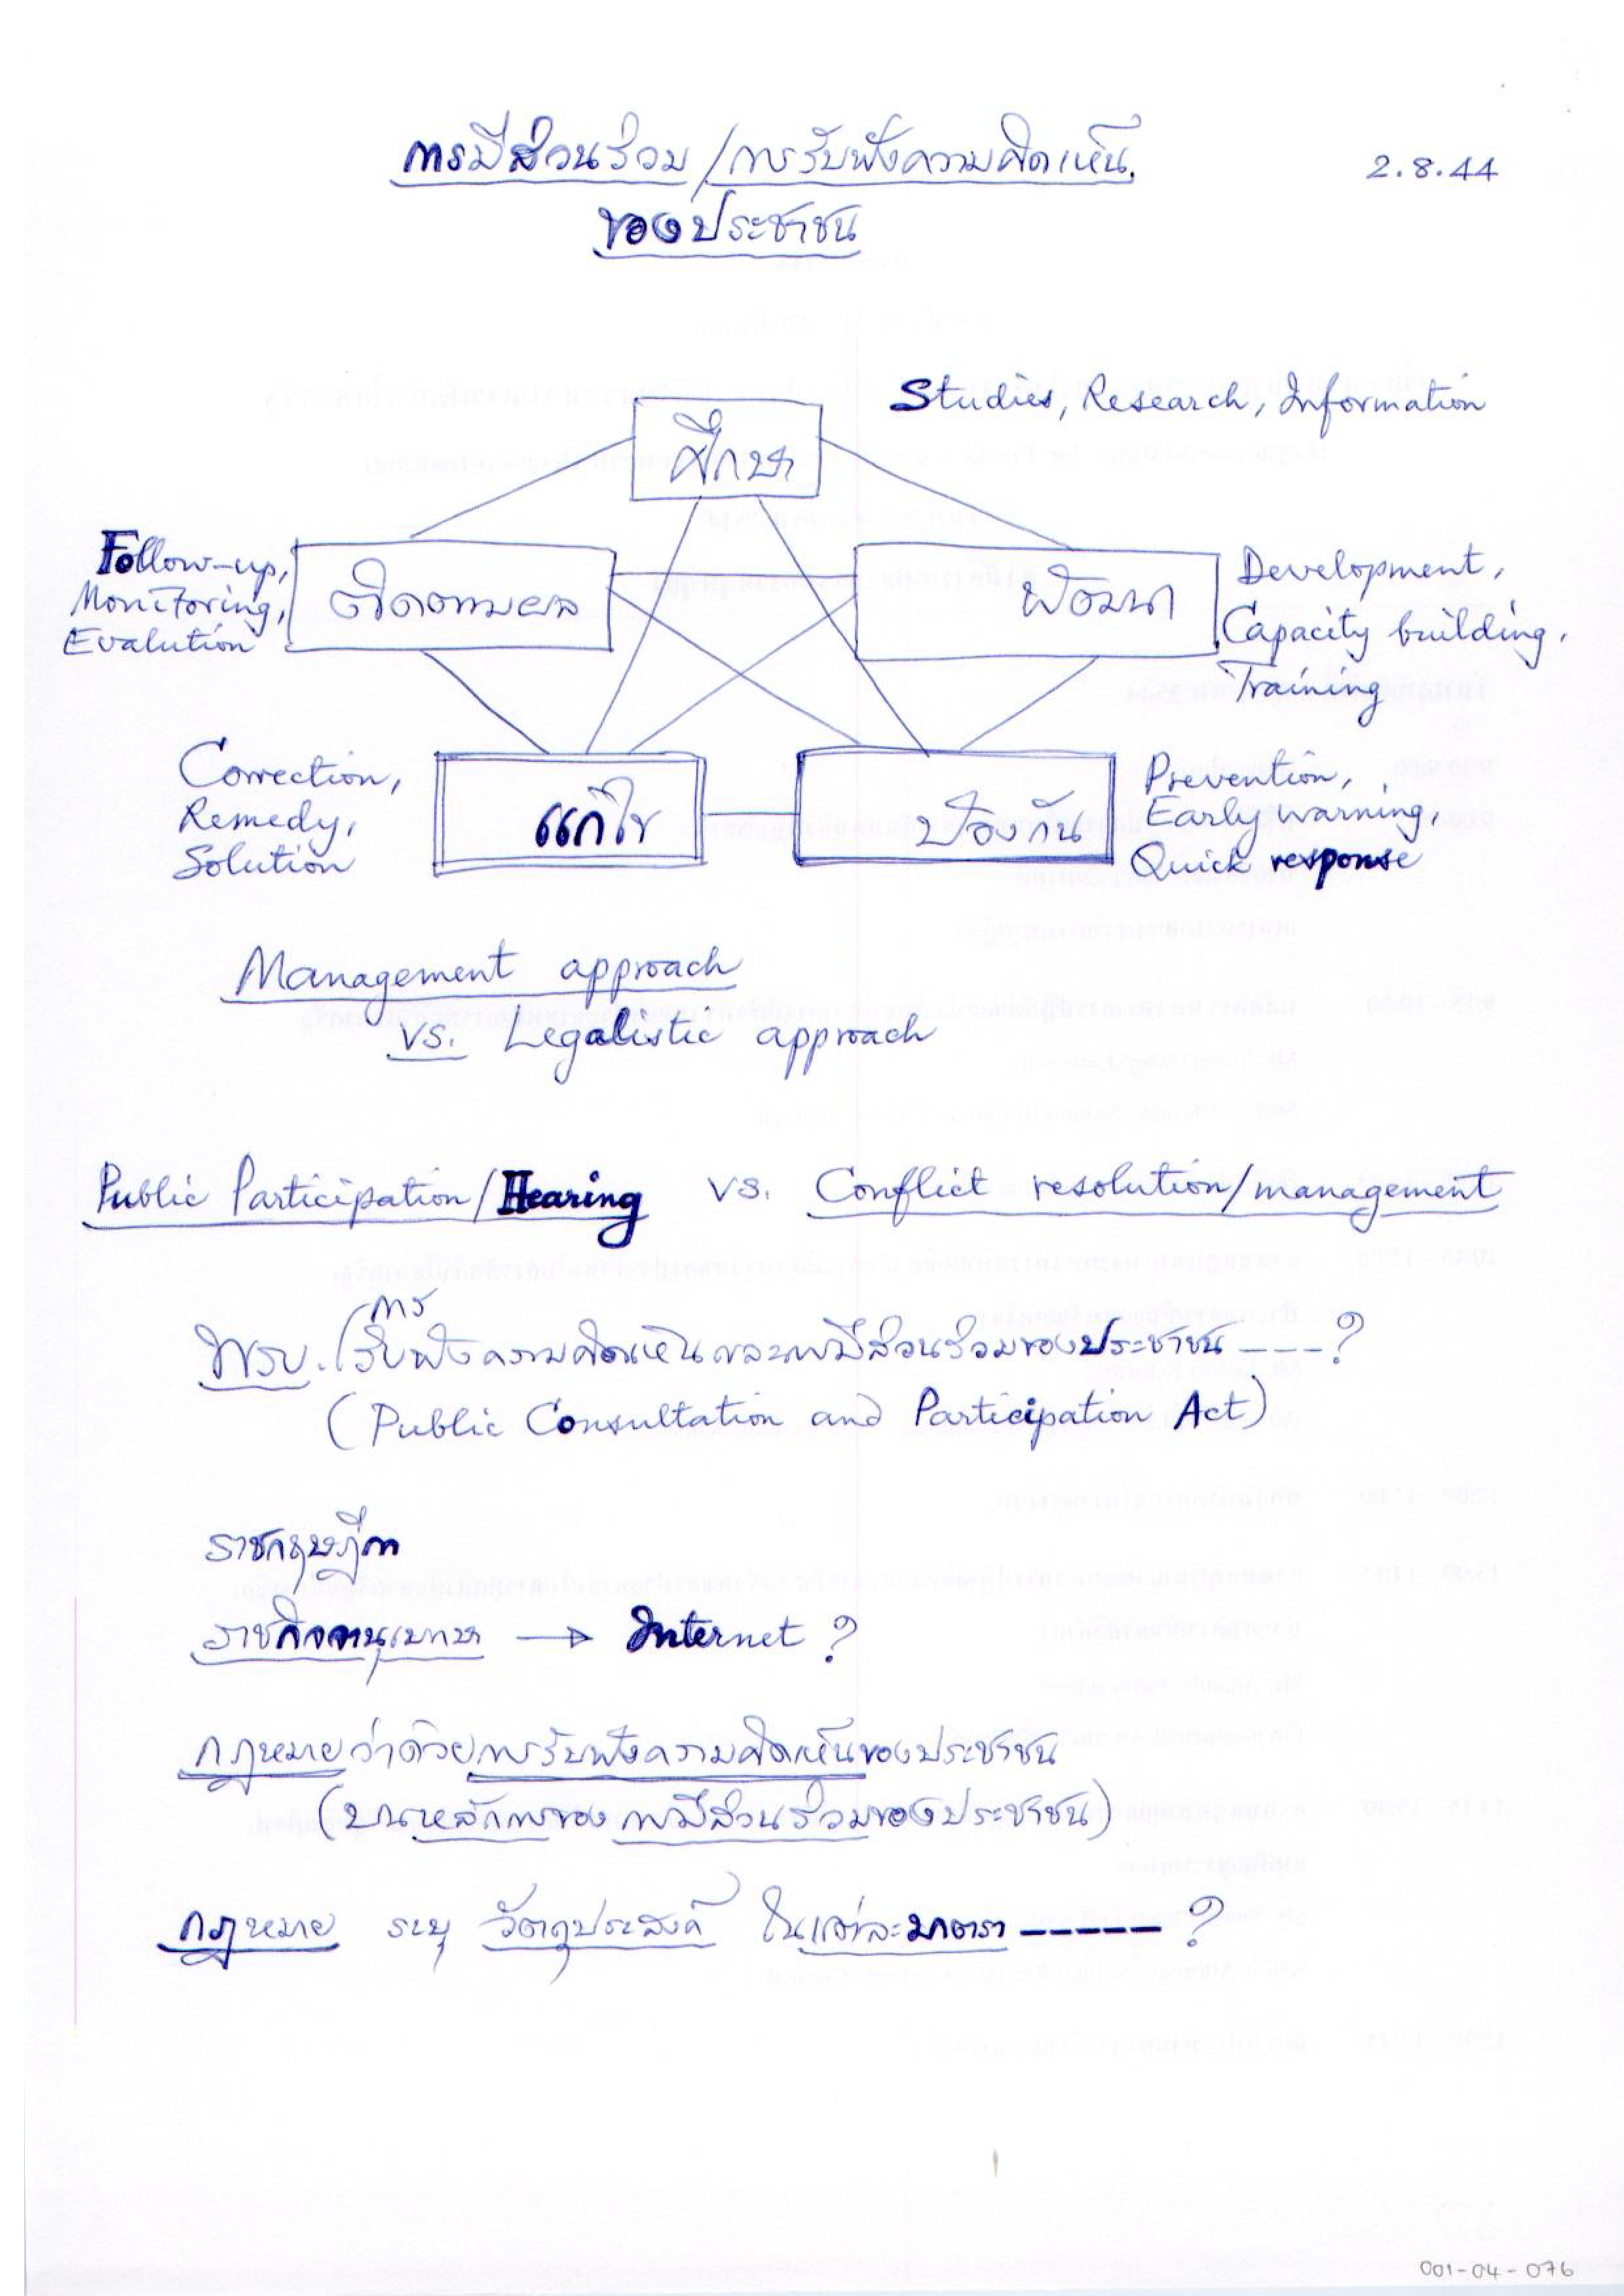 การมีส่วนร่วม/การรับฟังความคิดเห็น
ของประชาชน
2.8.44
Studies, Research, Information
ศึกษา
Follow-up,
Monitoring,
Evalution
ติดตามผล
พัฒนา
Development,
Capacity building,
Training
Correction,
Remedy,
Solution
แก้ไข
ป้องกัน
Prevention,
Early warning,
Quick response
Management approach
vs. Legalistic approach
Public Participation/Hearing vs. Conflict resolution/management
การ
พรบ. (รับฟังความคิดเห็นและการมีส่วนร่วมของประชาชน ---?
(Public Consultation and Participation Act)
ราชกฤษฎีกา
ราชกิจจานุเบกษา → Internet ?
กฎหมายว่าด้วยการรับฟังความคิดเห็นของประชาชน
(บนหลักการของ การมีส่วนร่วมของประชาชน)
กฎหมาย ระบุ วัตถุประสงค์ ในแต่ละมาตรา ----- ?
001-04-076